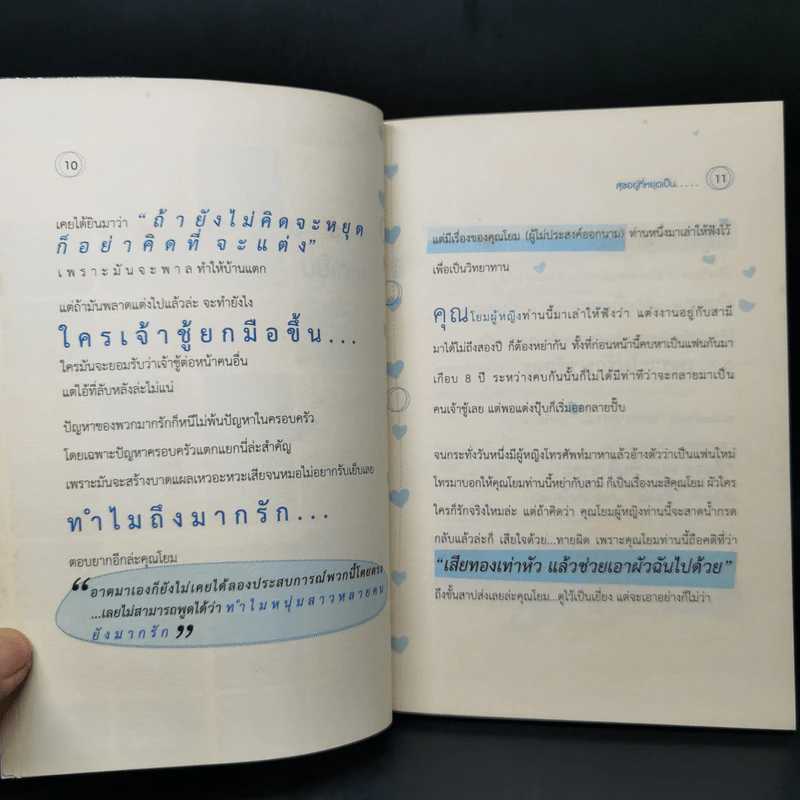 10
เคยได้ยินมาว่า “ถ้ายังไม่คิดจะหยุด
ก็อย่าคิดที่ จะแต่ง”
เพราะมันจะพาล ทำให้บ้านแตก
แต่ถ้ามันพลาดแต่งไปแล้วล่ะ จะทำยังไง
ใครเจ้าชู้ยกมือขึ้น...
ใครมันจะยอมรับว่าเจ้าชู้ต่อหน้าคนอื่น
แต่ไอ้ที่ลับหลังล่ะไม่แน่
ปัญหาของพวกมากรักก็หนีไม่พ้นปัญหาในครอบครัว
โดยเฉพาะปัญหาครอบครัวแตกแยกนี่ล่ะสำคัญ
เพราะมันจะสร้างบาดแผลเหวอะหวะเสียจนหมอไม่อยากรับเย็บเลย
ทำไมถึงมากรัก...
ตอบยากอีกล่ะคุณโยม
“อาตมาเองก็ยังไม่เคยได้ลองประสบการณ์พวกนี้โดยตรง
...เลยไม่สามารถพูดได้ว่า ทำไมหนุ่มสาวหลายคน
ยังมากรัก”
สุขอยู่ที่หยุดเป็น..... 11
แต่มีเรื่องของคุณโยม (ผู้ไม่ประสงค์ออกนาม) ท่านหนึ่งมาเล่าให้ฟังไว้
เพื่อเป็นวิทยาทาน
คุณโยมผู้หญิงท่านนี้มาเล่าให้ฟังว่า แต่งงานอยู่กับสามี
มาได้ไม่ถึงสองปี ก็ต้องหย่ากัน ทั้งที่ก่อนหน้านี้คบหาเป็นแฟนกันมา
เกือบ 8 ปี ระหว่างคบกันนั้นก็ไม่ได้มีท่าทีว่าจะกลายมาเป็น
คนเจ้าชู้เลย แต่พอแต่งปุ๊บก็เริ่มออกลายปั๊บ
จนกระทั่งวันหนึ่งมีผู้หญิงโทรศัพท์มาหาแล้วอ้างตัวว่าเป็นแฟนใหม่
โทรมาบอกให้คุณโยมท่านนี้หย่ากับสามี ก็เป็นเรื่องนะสิคุณโยม ผัวใคร
ใครก็รักจริงไหมล่ะ แต่ถ้าคิดว่า คุณโยมผู้หญิงท่านนี้จะสาดน้ำกรด
กลับแล้วล่ะก็ เสียใจด้วย...ทายผิด เพราะคุณโยมท่านนี้ถือคติที่ว่า
“เสียทองเท่าหัว แล้วช่วยเอาผัวฉันไปด้วย”
ถึงขั้นสาปส่งเลยล่ะคุณโยม...ดูไว้เป็นเยี่ยง แต่จะเอาอย่างก็ไม่ว่า